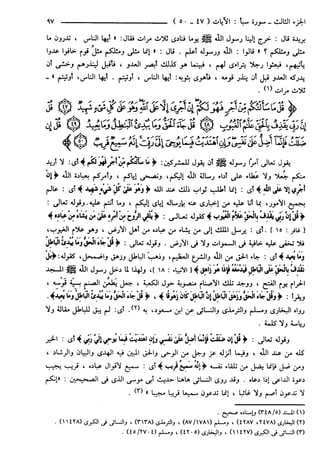 الجزء الثالث - سورة سبأ : الآيات ( ٤٧ - ٥٠ ) ٩٧
بريدة قال : خرج إلينا رسول الله ﷺ يوما فنادى ثلاث مرات فقال : « أيها الناس ، تدرون ما
مثلي ومثلكم ؟ » قالوا : الله ورسوله أعلم . قال : « إنما مثلي ومثلكم مثل قوم خافوا عدوا
يأتيهم ، فبعثوا رجلا يتراءى لهم ، فبينما هو كذلك أبصر العدو ، فأقبل لينذرهم وخشي أن
يدركه العدو قبل أن ينذر قومه ، فأهوى بثوبه : أيها الناس ، أوتيتم . أيها الناس ، أوتيتم » -
ثلاث مرات (١) .
﴿ قُلْ مَا سَأَلْتُكُم مِّنْ أَجْرٍ فَهُوَ لَكُمْ إِنْ أَجْرِيَ إِلَّا عَلَى اللَّهِ وَهُوَ عَلَىٰ كُلِّ شَيْءٍ شَهِيدٌ ﴿٤٧﴾ قُلْ إِنَّ
رَبِّي يَقْذِفُ بِالْحَقِّ عَلَّامُ الْغُيُوبِ ﴿٤٨﴾ قُلْ جَاءَ الْحَقُّ وَمَا يُبْدِئُ الْبَاطِلُ وَمَا يُعِيدُ ﴿٤٩﴾ قُلْ إِن
ضَلَلْتُ فَإِنَّمَا أَضِلُّ عَلَىٰ نَفْسِي وَإِنِ اهْتَدَيْتُ فَبِمَا يُوحِي إِلَيَّ رَبِّي إِنَّهُ سَمِيعٌ قَرِيبٌ ﴿٥٠﴾ ﴾
يقول تعالى آمرا رسوله ﷺ أن يقول للمشركين : ﴿ مَا سَأَلْتُكُم مِّنْ أَجْرٍ فَهُوَ لَكُمْ ﴾ أي : لا أريد
منكم جعلا ولا عطاء على أداء رسالة الله إليكم ، ونصحي إياكم ، وأمركم بعبادة الله ﴿ إِنْ
أَجْرِيَ إِلَّا عَلَى اللَّهِ ﴾ أي : إنما أطلب ثواب ذلك عند الله ﴿ وَهُوَ عَلَىٰ كُلِّ شَيْءٍ شَهِيدٌ ﴾ أي : عالم
بجميع الأمور ، بما أنا عليه من إخباري عنه بإرساله إياي إليكم ، وما أنتم عليه . وقوله تعالى :
﴿ قُلْ إِنَّ رَبِّي يَقْذِفُ بِالْحَقِّ عَلَّامُ الْغُيُوبِ ﴾ كقوله تعالى : ﴿ يُلْقِي الرُّوحَ مِنْ أَمْرِهِ عَلَىٰ مَن يَشَاءُ مِنْ عِبَادِهِ ﴾
[ غافر : ١٥ ] . أي : يرسل الملك إلى من يشاء من عباده من أهل الأرض ، وهو علام الغيوب ،
فلا تخفى عليه خافية في السموات ولا في الأرض . وقوله تعالى : ﴿ قُلْ جَاءَ الْحَقُّ وَمَا يُبْدِئُ الْبَاطِلُ
وَمَا يُعِيدُ ﴾ أي : جاء الحق من الله والشرع العظيم ، وذهب الباطل وزهق واضمحل ، كقوله : ﴿ بَلْ
نَقْذِفُ بِالْحَقِّ عَلَى الْبَاطِلِ فَيَدْمَغُهُ فَإِذَا هُوَ زَاهِقٌ ﴾ [ الأنبياء : ١٨ ] ، ولهذا لما دخل رسول الله ﷺ المسجد
الحرام يوم الفتح ، ووجد تلك الأصنام منصوبة حول الكعبة ، جعل يطعن الصنم بسية قوسه ،
ويقرأ : ﴿ وَقُلْ جَاءَ الْحَقُّ وَزَهَقَ الْبَاطِلُ إِنَّ الْبَاطِلَ كَانَ زَهُوقًا ﴾ ، ﴿ قُلْ جَاءَ الْحَقُّ وَمَا يُبْدِئُ الْبَاطِلُ وَمَا يُعِيدُ ﴾ .
رواه البخاري ومسلم والترمذي والنسائي عن ابن مسعود ، به (٢) . أي : لم يبق للباطل مقالة ولا
رياسة ولا كلمة .
وقوله تعالى : ﴿ قُلْ إِن ضَلَلْتُ فَإِنَّمَا أَضِلُّ عَلَىٰ نَفْسِي وَإِنِ اهْتَدَيْتُ فَبِمَا يُوحِي إِلَيَّ رَبِّي ﴾ أي : الخير
كله من عند الله ، وفيما أنزله عز وجل من الوحي والحق المبين فيه الهدى والبيان والرشاد ،
ومن ضل فإنما يضل من تلقاء نفسه ﴿ إِنَّهُ سَمِيعٌ قَرِيبٌ ﴾ أي : سميع لأقوال عباده ، قريب يجيب
دعوة الداعي إذا دعاه . وقد روى النسائي هاهنا حديث أبي موسى الذي في الصحيحين : « إنكم
لا تدعون أصم ولا غائبا ، إنما تدعون سميعا قريبا مجيبا » (٣) .
(١) المسند (٣٤٨/٥) وإسناده صحيح .
(٢) البخاري (٢٤٧٨، ٤٢٨٧) ، ومسلم (٨٧/١٧٨١) ، والترمذي (٣١٣٨) ، والنسائي في الكبرى (١١٤٢٨) .
(٣) النسائي في الكبرى (١١٤٢٧) ، والبخاري (٤٢٠٥) ، ومسلم (٤٥/٢٧٠٤) .